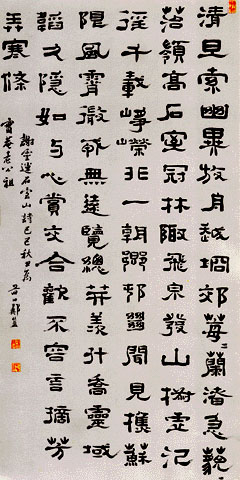 清旦索幽異放舟越坰郊莓〻蘭渚急藐〻
苔嶺高石室冠林陬飛泉發山椒虛泛
徑千載崢嶸非一朝鄉邨絕聞見樵蘇
限風霄微戎無遠覽總笄羨升喬靈域
韜久隱如與心賞交合歡不容言摘芳
弄寒條
謝靈運石室山詩己巳秋日為
雪菴老公祖
谷口鄭簠